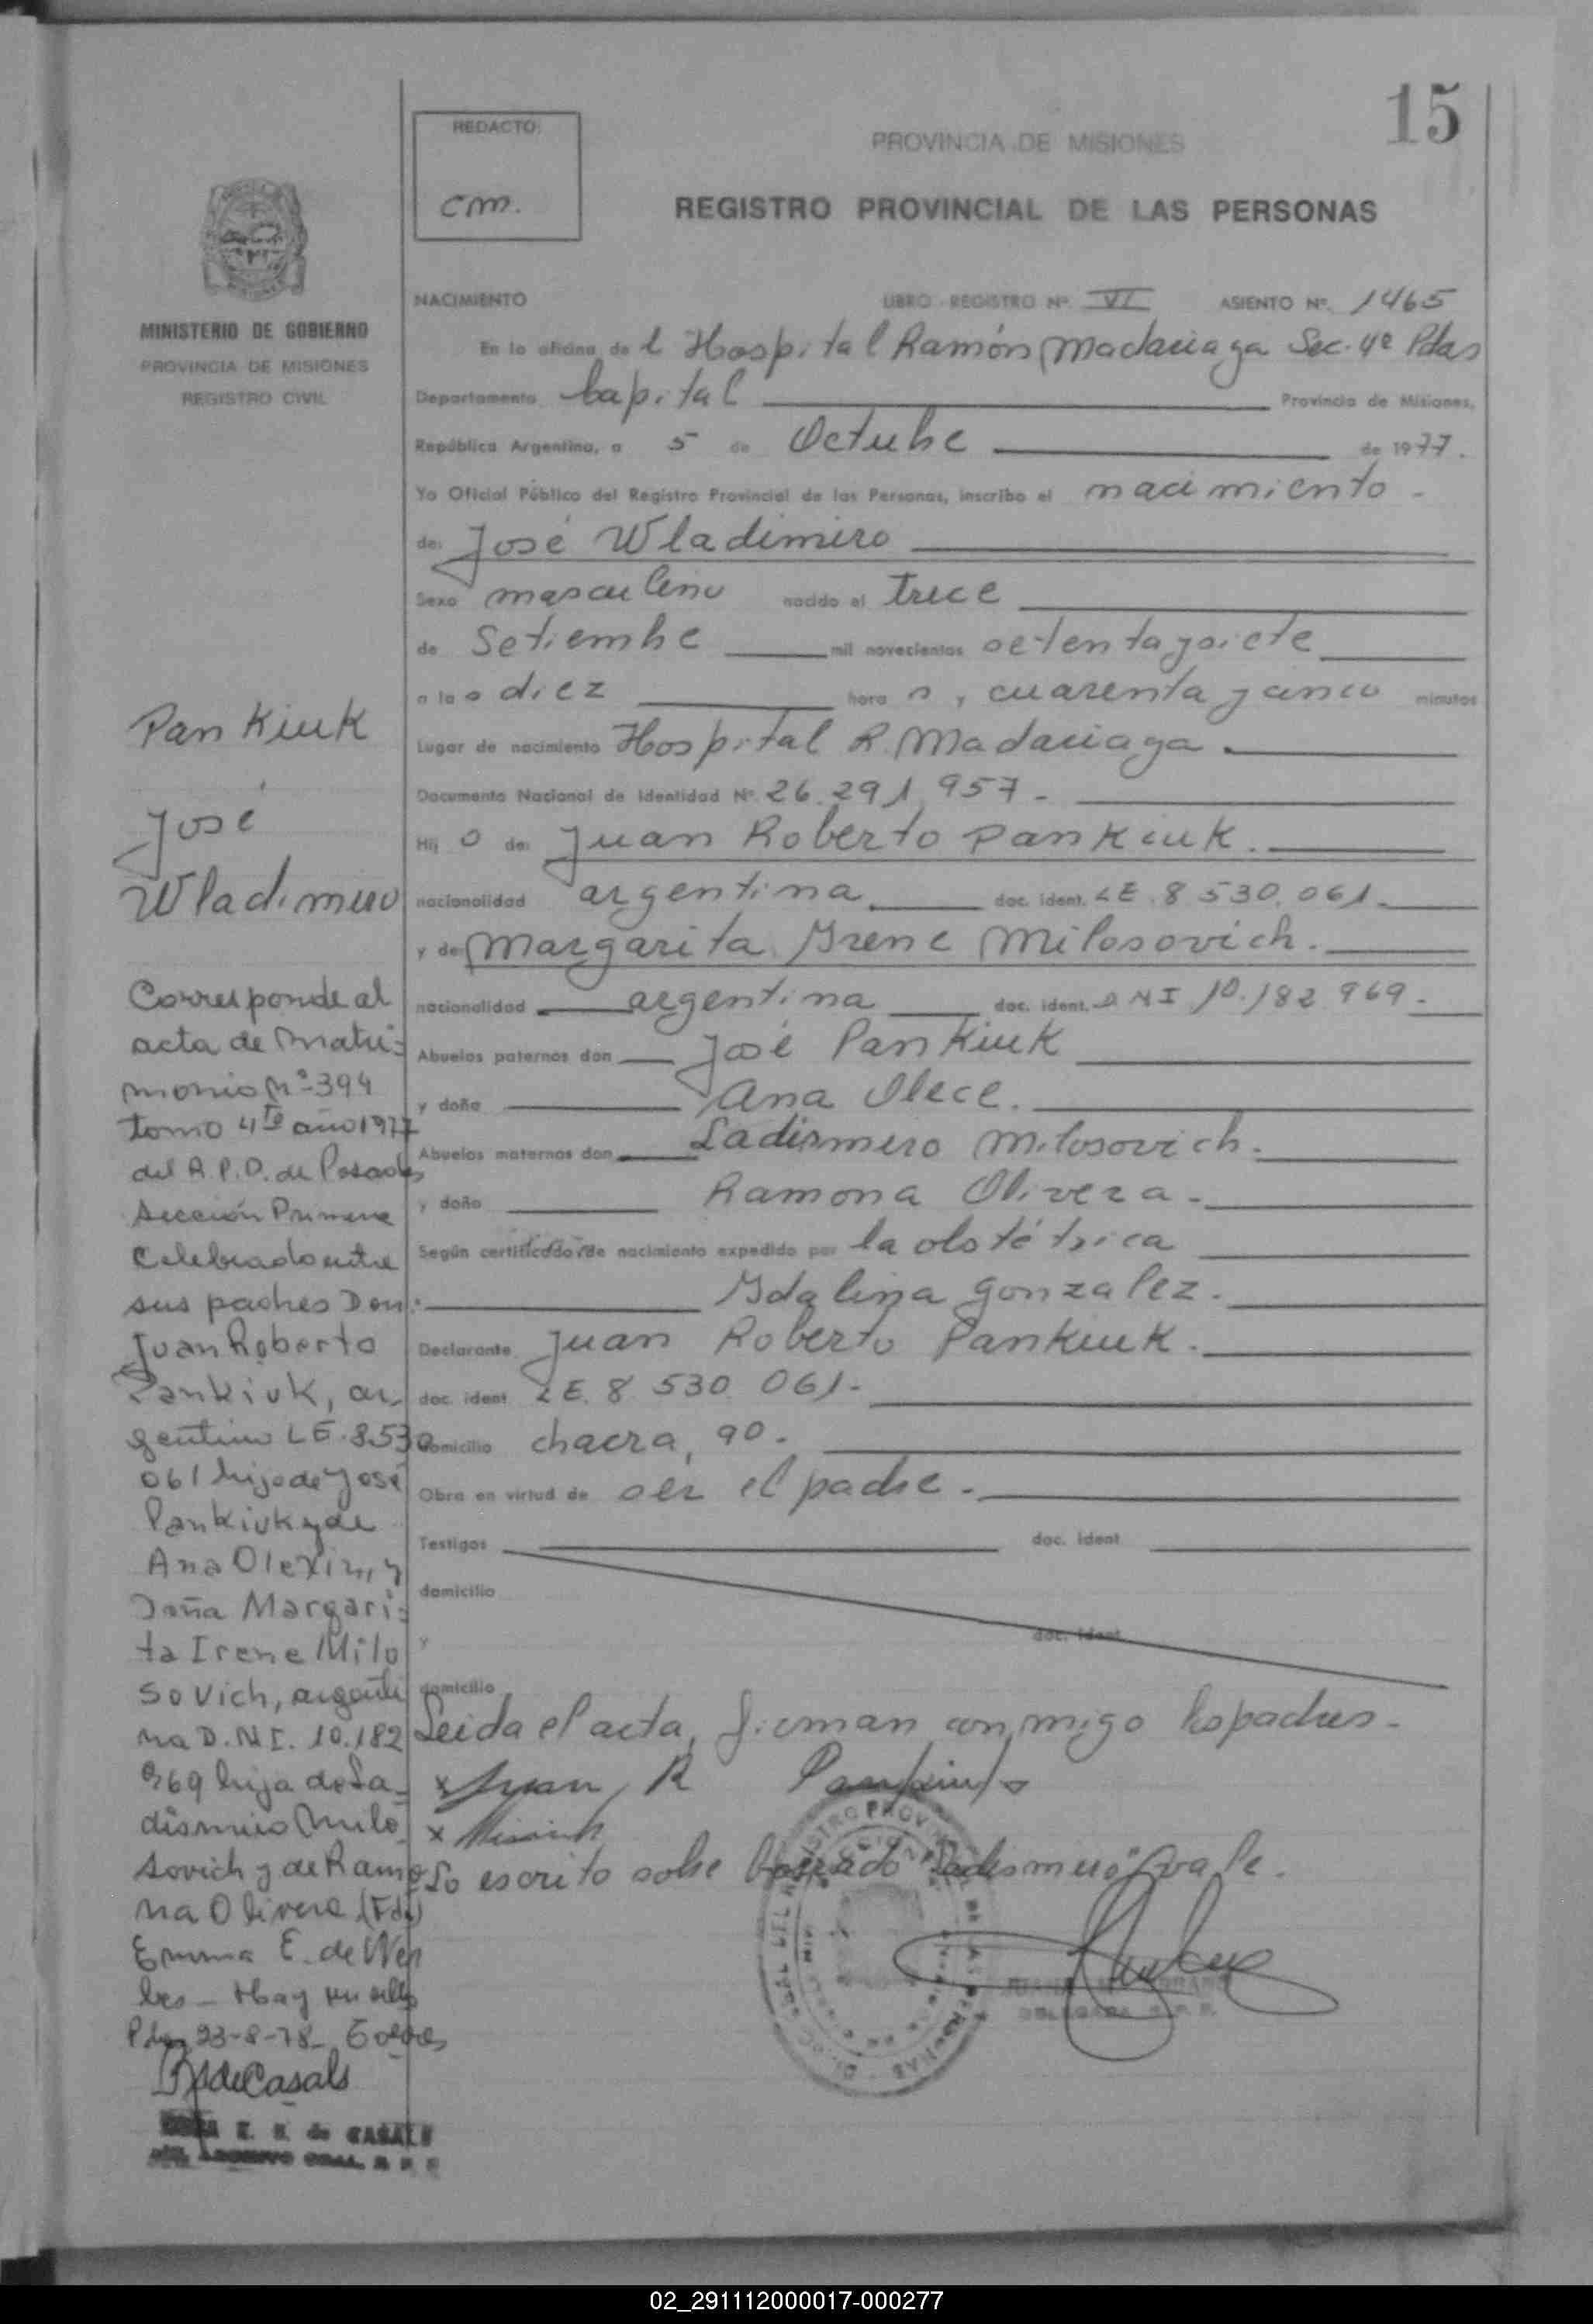 15
REDACTO:
cm.
PROVINCIA DE MISIONES
REGISTRO PROVINCIAL DE LAS PERSONAS
MINISTERIO DE GOBIERNO
PROVINCIA DE MISIONES
REGISTRO CIVIL
NACIMIENTO LIBRO - REGISTRO Nº. VI ASIENTO Nº. 1465
En la oficina de l Hospital Ramón Madariaga Sec. 4ª Pdas
Departamento Capital Provincia de Misiones,
República Argentina, a 5 de Octubre de 1977.
Yo Oficial Público del Registro Provincial de las Personas, inscribo el nacimiento -
de: José Wladimiro
Sexo masculino nacido el trece
de Setiembre mil novecientos setenta y siete
a la s diez hora s y cuarenta y cinco minutos
Lugar de nacimiento Hospital R. Madariaga.
Documento Nacional de Identidad Nº 26.291.957-
Hij o de: Juan Roberto Pankiuk.
nacionalidad argentina doc. ident. LE. 8 530. 061.
y de: Margarita Irene Milosovich.
nacionalidad argentina doc. ident. DNI 10.182 969.
Abuelos paternos don José Pankiuk
y doña Ana Olece.
Abuelos maternos don Ladismero Milosovich.
y doña Ramona Olivera.
Según certificado de nacimiento expedido por la obstétrica
Idalina Gonzalez.
Declarante Juan Roberto Pankiuk.
doc. ident LE. 8 530. 061-
domicilio chacra, 90-
Obra en virtud de ser el padre.
Testigos doc. ident
domicilio
y doc. ident
domicilio
Leida el acta, firman conmigo los padres-
x Juan R
x
Lo escrito sobre borrado "Ladismero" vale.
DELEGADA R. P. P.
Pankiuk
José
Wladimiro
Corresponde al
acta de Matri=
monio Nº-394
tomo 4to año 1977
del R.P.P. de Posadas
Sección Primera
Celebrado entre
sus padres Don:
Juan Roberto
Pankiuk, ar
gentino LE. 8.530
061 hijo de José
Pankiuk y de
Ana Olexin, y
Doña Margari=
ta Irene Milo
sovich, argenti
na D.N.I. 10.182
969 hija de La=
dismiro Milo
sovich y de Ramo
na Olivera (Fdo)
Emma E. de
Hay un sello
Pdas 23-8-78-
de Casals
E. R. de CASALS
ARCHIVO GRAL. R P P
02_291112000017-000277